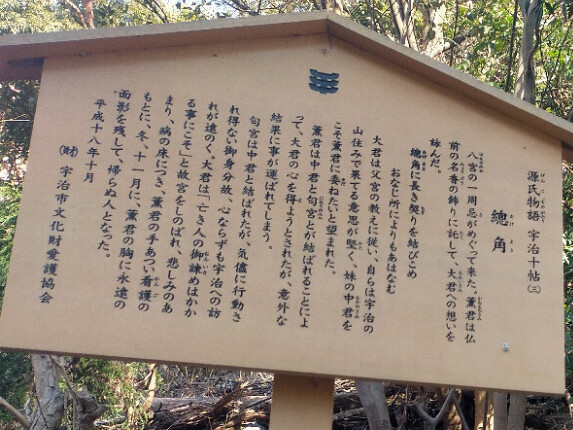 源氏物語 宇治十帖 (三)
總角
八宮の一周忌がめぐって来た。薫君は仏
前の名香の飾りに託して、大君への想いを
詠んだ。
總角に長き契りを結びこめ
おなじ所によりもあはなむ
大君は父宮の教えに従い、自らは宇治の
山住みで果てる意思が堅く、妹の中君を
こそ薫君に委ねたいと望まれた。
薫君は中君と匂宮とが結ばれることによ
って、大君の心を得ようとされたが、意外な
結果に事が運ばれてしまう。
匂宮は中君と結ばれたが、気儘に行動さ
れ得ない御身分故、心ならずも宇治への訪
れが遠のく。大君は「亡き人の御諫めはかか
る事にこそ」と故宮をしのばれ、悲しみのあ
まり、病の床につき、薫君の手あつい看護の
もとに、冬、十一月に、薫君の胸に永遠の
面影を残して、帰らぬ人となった。
平成十八年十月
(財) 宇治市文化財愛護協会